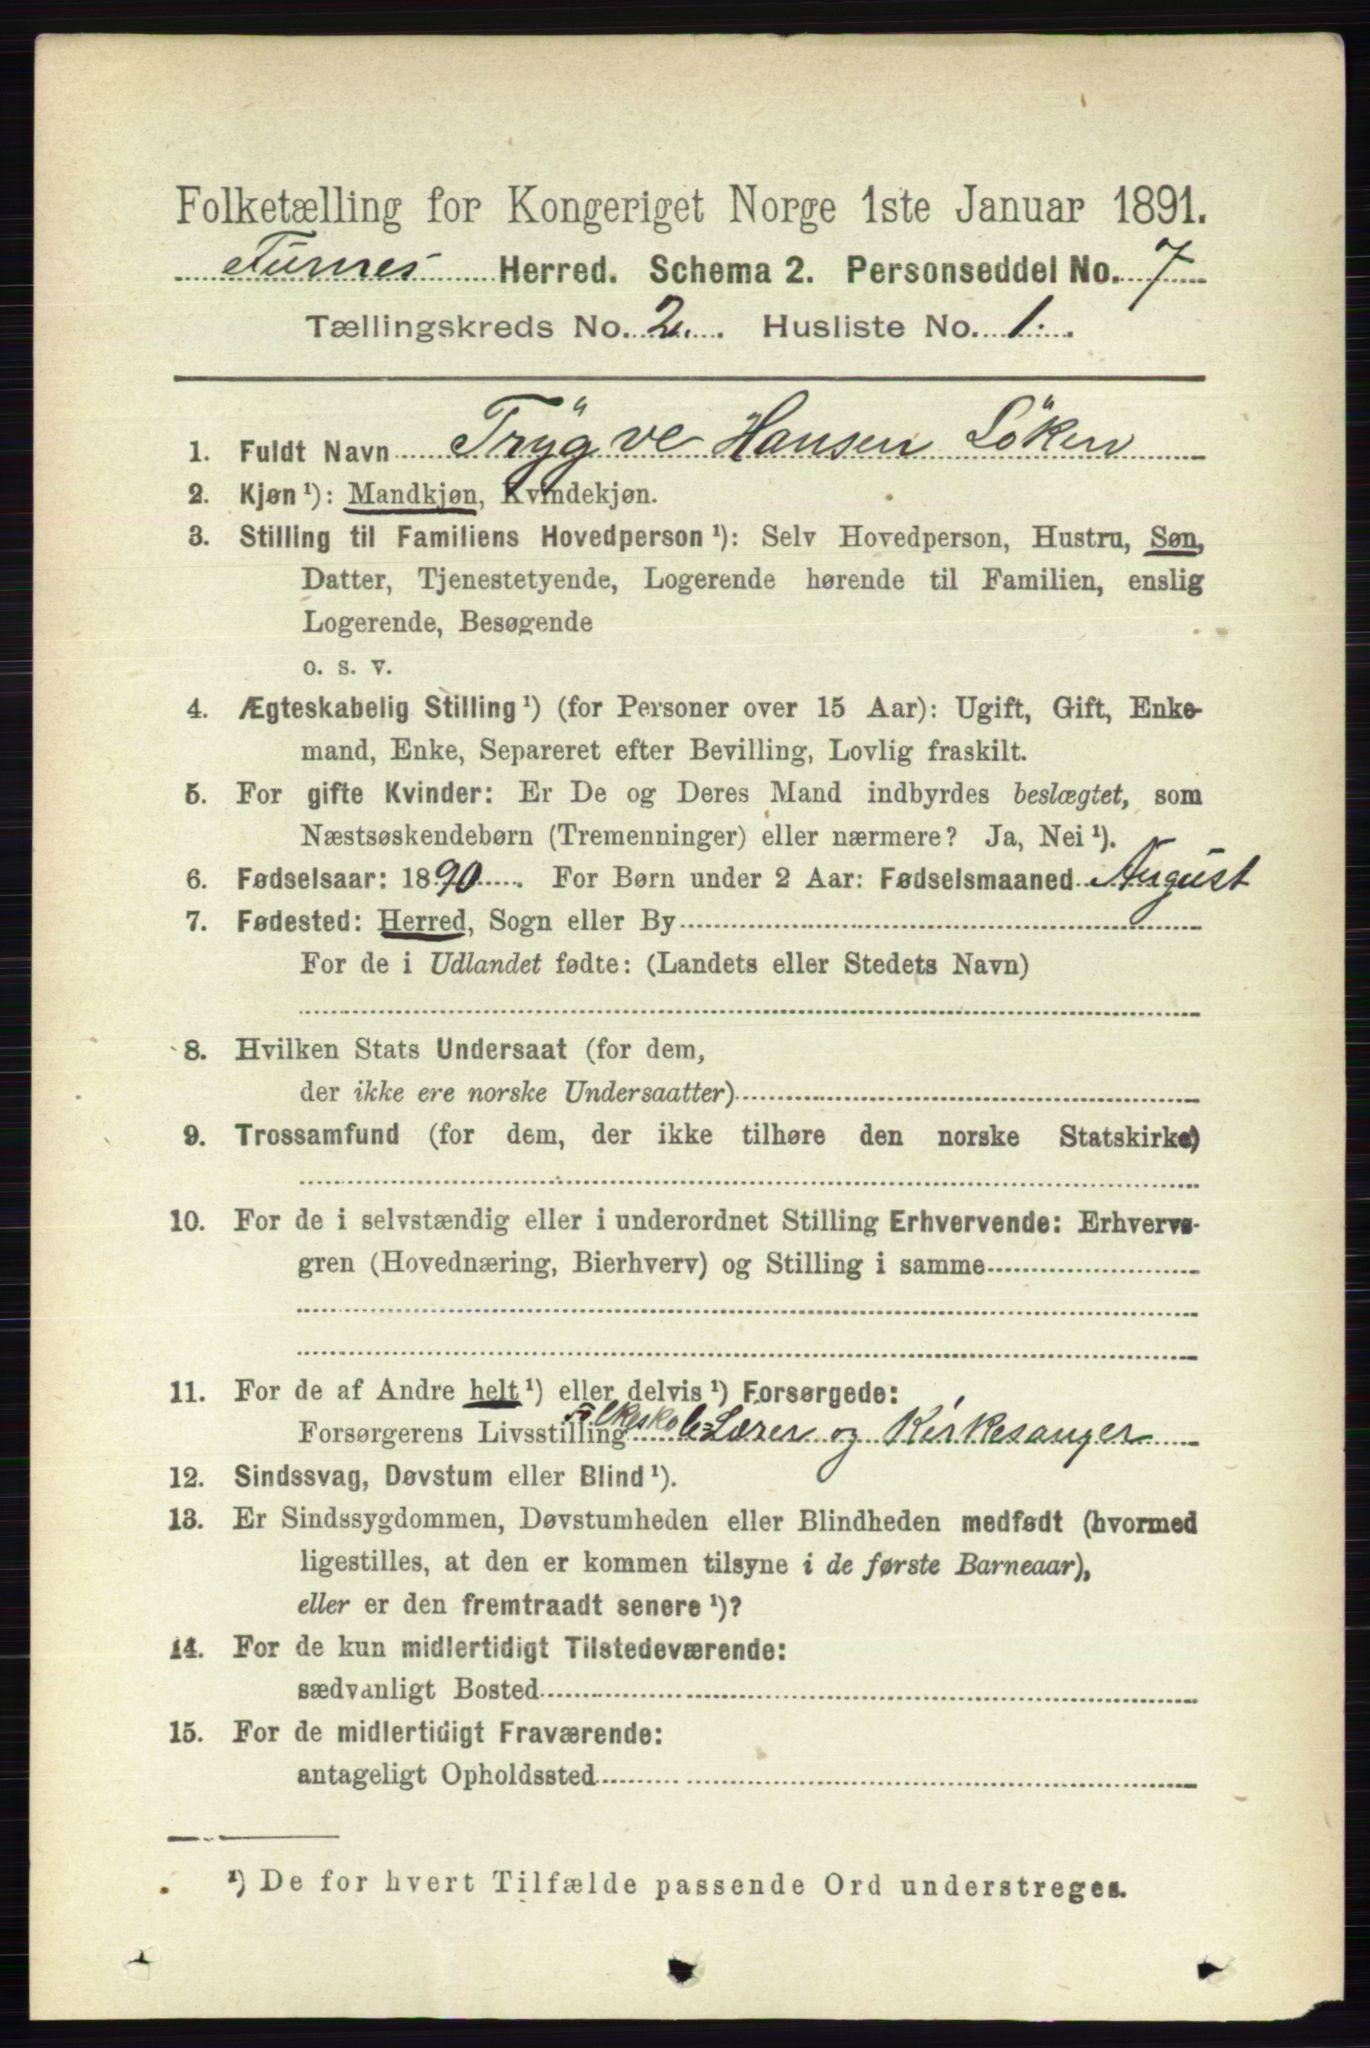 Folketælling for Kongeriget Norge 1ste Januar 1891.
Furnes Herred. Schema 2. Personseddel No. 7
Tællingskreds No. 2. Husliste No. 1.
1. Fuldt Navn Trÿgve Hansen Löken
2. Kjøn ¹): Mandkjøn, Kvindekjøn.
3. Stilling til Familiens Hovedperson ¹): Selv Hovedperson, Hustru, Søn,
Datter, Tjenestetyende, Logerende hørende til Familien, enslig
Logerende, Besøgende
o. s. v.
4. Ægteskabelig Stilling ¹) (for Personer over 15 Aar): Ugift, Gift, Enke-
mand, Enke, Separeret efter Bevilling, Lovlig fraskilt.
5. For gifte Kvinder: Er De og Deres Mand indbyrdes beslægtet, som
Næstsøskendebørn (Tremenninger) eller nærmere? Ja, Nei ¹).
6. Fødselsaar: 1890. For Børn under 2 Aar: Fødselsmaaned August
7. Fødested: Herred, Sogn eller By
For de i Udlandet fødte: (Landets eller Stedets Navn)
8. Hvilken Stats Undersaat (for dem,
der ikke ere norske Undersaatter)
9. Trossamfund (for dem, der ikke tilhøre den norske Statskirke)
10. For de i selvstændig eller i underordnet Stilling Erhvervende: Erhvervs-
gren (Hovednæring, Bierhverv) og Stilling i samme
11. For de af Andre helt ¹) eller delvis ¹) Forsørgede:
Forsørgerens Livsstilling Folkeskole=Lærer og Kirkesanger
12. Sindssvag, Døvstum eller Blind ¹).
13. Er Sindssygdommen, Døvstumheden eller Blindheden medfødt (hvormed
ligestilles, at den er kommen tilsyne i de første Barneaar),
eller er den fremtraadt senere ¹)?
14. For de kun midlertidigt Tilstedeværende:
sædvanligt Bosted
15. For de midlertidigt Fraværende:
antageligt Opholdssted
¹) De for hvert Tilfælde passende Ord understreges.